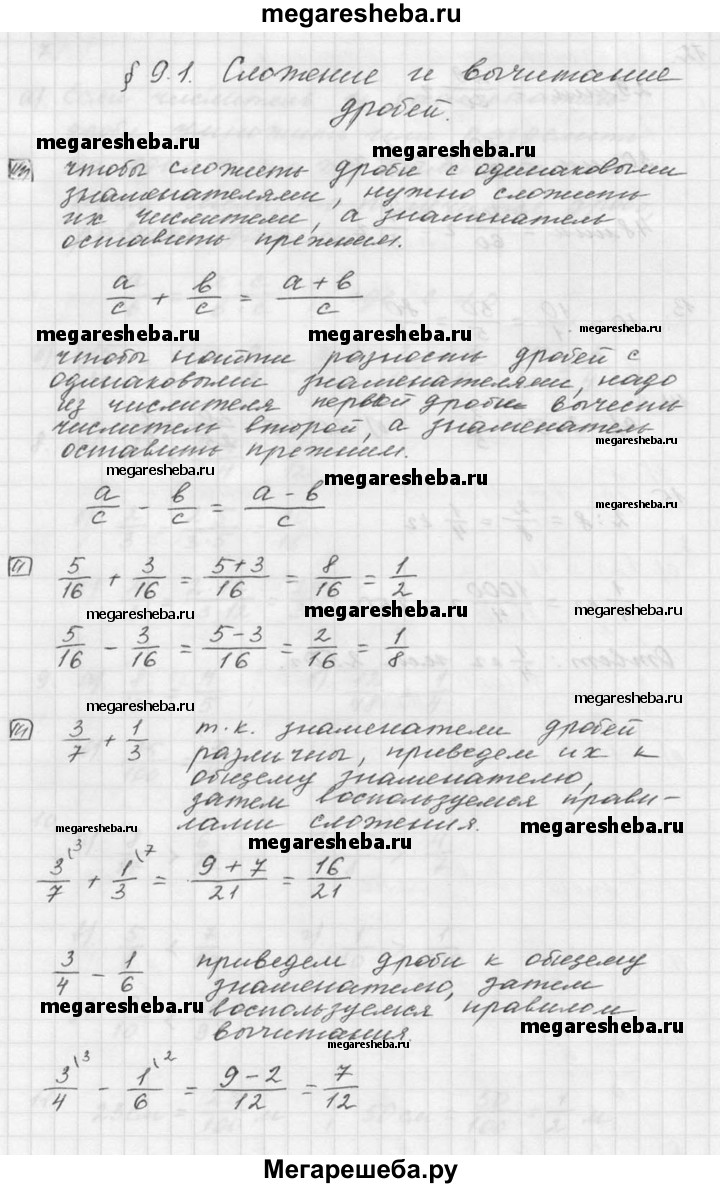 megaresheba.ru
§ 9.1. Сложение и вычитание
дробей.
megaresheba.ru megaresheba.ru
чтобы сложить дроби с одинаковыми
знаменателями, нужно сложить
их числители, а знаменатель
оставить прежним.
a/c + b/c = a + b/c
megaresheba.ru megaresheba.ru megaresheba.ru
чтобы найти разность дробей с
одинаковыми знаменателями, надо
из числителя первой дроби вычесть
числитель второй, а знаменатель
megaresheba.ru
оставить прежним.
megaresheba.ru megaresheba.ru
a/c - b/c = a - b/c
megaresheba.ru
5/16 + 3/16 = 5+3/16 = 8/16 = 1/2
megaresheba.ru megaresheba.ru megaresheba.ru
5/16 - 3/16 = 5-3/16 = 2/16 = 1/8
megaresheba.ru megaresheba.ru
3/7 + 1/3 т.к. знаменатели дробей
различны, приведем их к
общему знаменателю,
затем воспользуемся прави-
лами сложения.
megaresheba.ru megaresheba.ru megaresheba.ru
3/7 \3 + 1/3 \7 = 9 + 7/21 = 16/21
3/4 - 1/6 приведем дроби к общему
знаменателю, затем
воспользуемся правилом
вычитания.
megaresheba.ru megaresheba.ru megaresheba.ru
3/4 \3 - 1/6 \2 = 9 - 2/12 = 7/12
Мегарешеба.ру